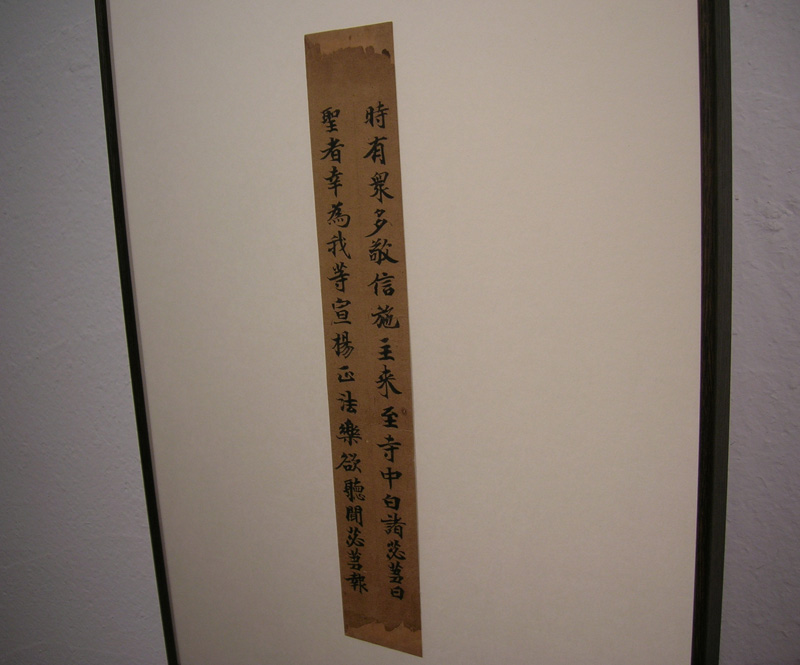 時有眾多敬信施主来至寺中白諸苾芻曰
聖者幸為我等宣揚正法樂欲聽聞苾芻報